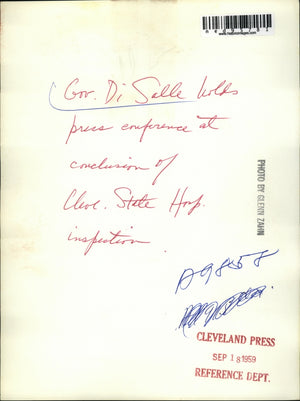 Gov. Di Salle holds
press conference at
conclusion of
Cleve. State Hosp.
inspection
PHOTO BY GLENN ZAHN
CLEVELAND PRESS
SEP 18 1959
REFERENCE DEPT.